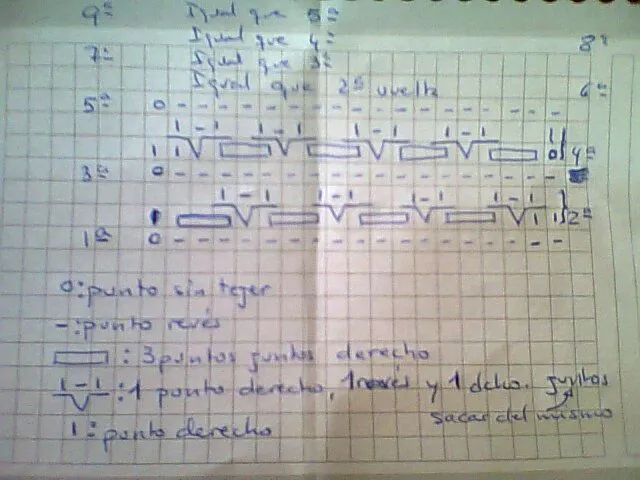 9ª Igual que 5ª
Igual que 4ª 8ª
7ª Igual que 3ª
Igual que 2ª vuelta 6ª
5ª 0 - - - - - - - - - - - - - - - -
1 - 1 1 - 1 1 - 1 1 - 1
1 1 0 4ª
3ª 0 - - - - - - - - - - - - - - - -
1 - 1 1 - 1 1 - 1 1 - 1
1 1 2ª
1ª 0 - - - - - - - - - - - - - - - -
0: punto sin tejer
-: punto revés
: 3 puntos juntos derecho
1 - 1 : 1 punto derecho, 1 revés y 1 dcho. juntos
sacar del mismo
1: punto derecho